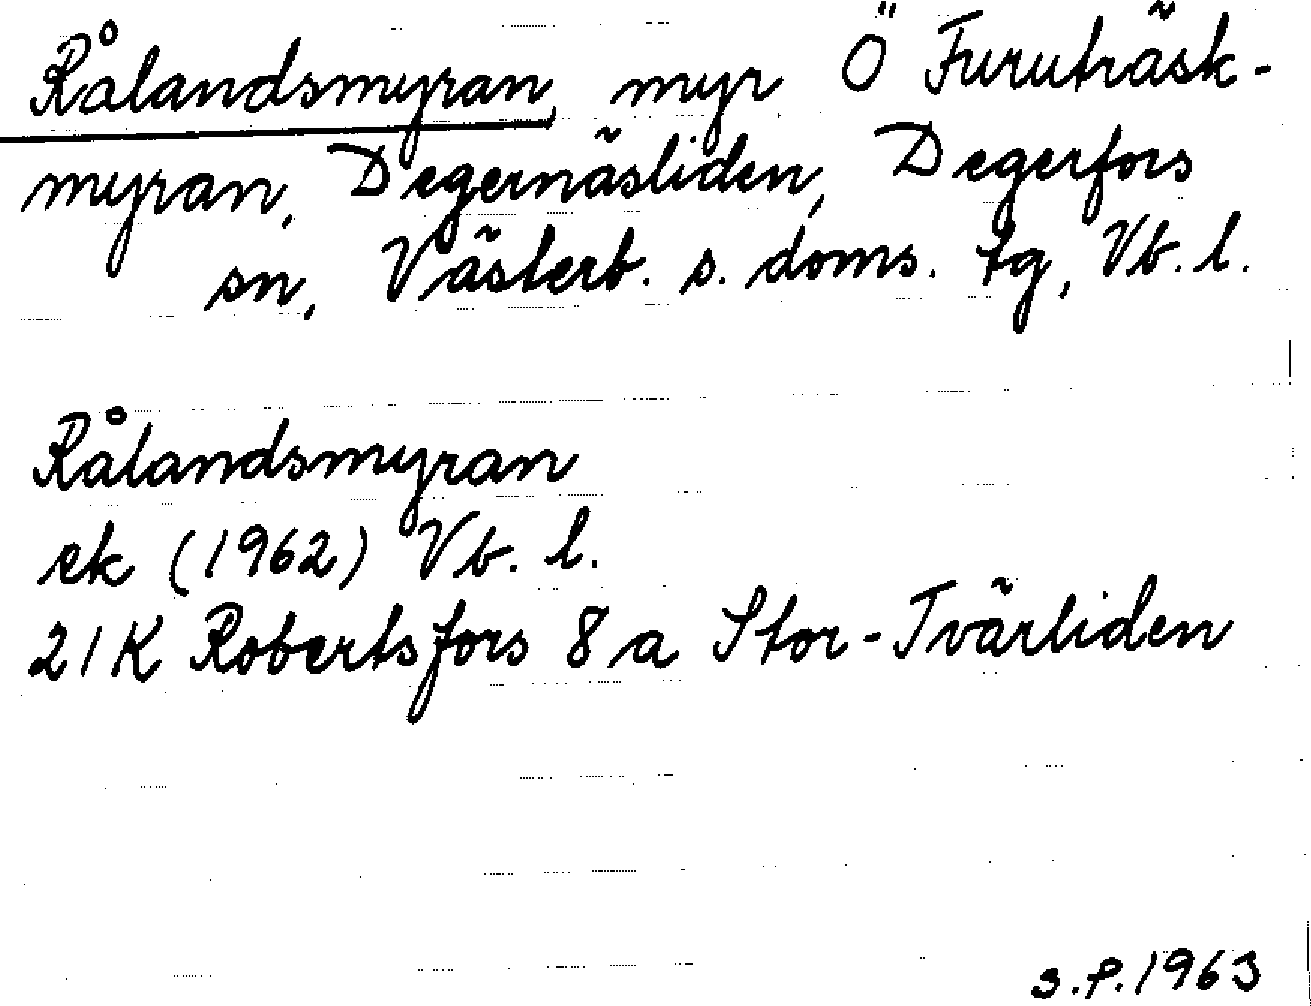 Rålandsmyran, myr Ö Furuträsk-
myran, Degernäsliden, Degerfors
sn, Västerb. s. doms. tg, Vb. l.
Rålandsmyran
ek (1962) Vb. l.
21K Robertsfors 8a Stor-Tvärliden
S.P. 1963